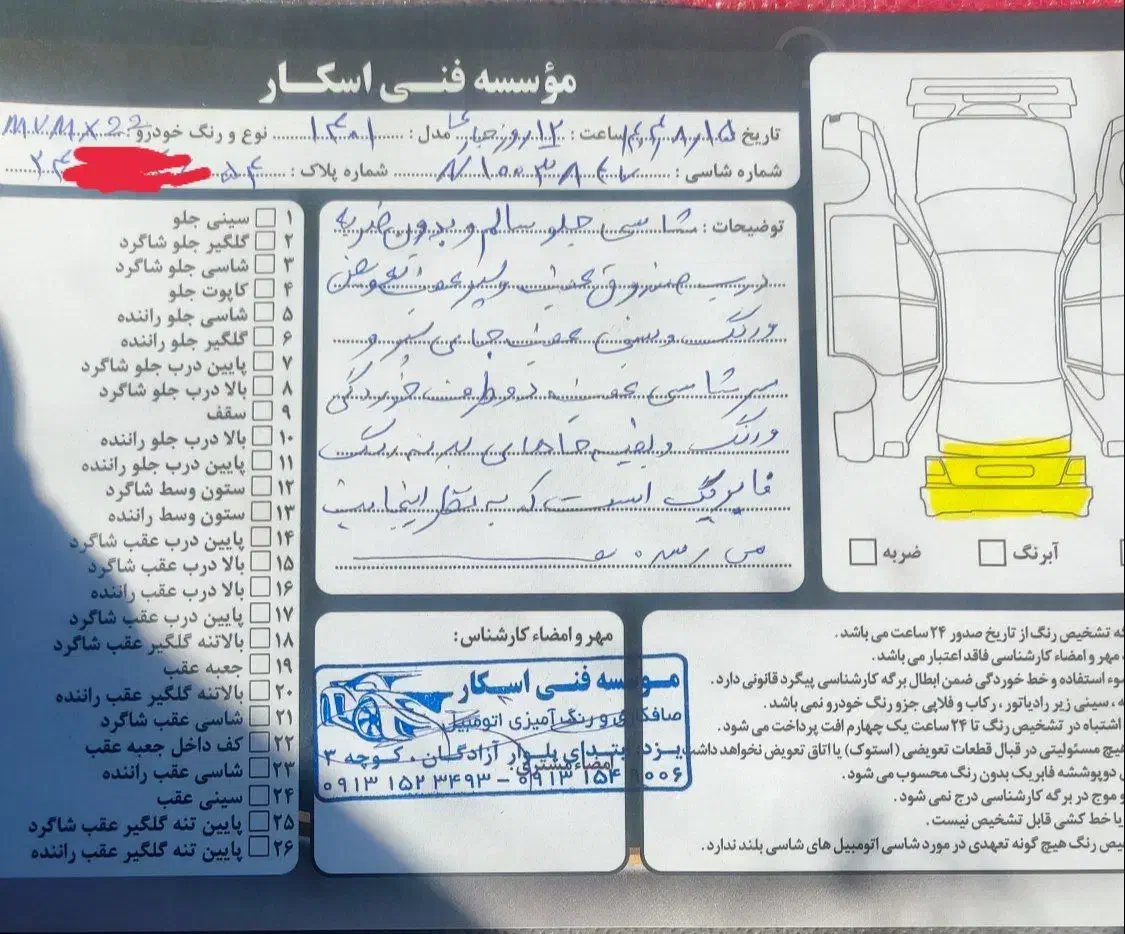 مؤسسه فنی اسکار
تاریخ ساعت : ۱۲ روز مدل : ۱۴۰۱ نوع و رنگ خودرو MVM X22
شماره شاسی : شماره پلاک : ۵۴
توضیحات : شاسی جلو سالم و بدون ضربه
درب صندوق عقب و سپر عقب تعویض
ورنگ و سینی عقب جای سپر و
سر شاسی عقب دو طرف خوردگی
ورنگ و بقیه جاهای بدنه رنگ
فابریک است که به نظر اینجانب
می رسد
۱ سینی جلو
۲ گلگیر جلو شاگرد
۳ شاسی جلو شاگرد
۴ کاپوت جلو
۵ شاسی جلو راننده
۶ گلگیر جلو راننده
۷ پایین درب جلو شاگرد
۸ بالا درب جلو شاگرد
۹ سقف
۱۰ بالا درب جلو راننده
۱۱ پایین درب جلو راننده
۱۲ ستون وسط شاگرد
۱۳ ستون وسط راننده
۱۴ پایین درب عقب شاگرد
۱۵ بالا درب عقب شاگرد
۱۶ بالا درب عقب راننده
۱۷ پایین درب عقب شاگرد
۱۸ بالاتنه گلگیر عقب شاگرد
۱۹ جعبه عقب
۲۰ بالاتنه گلگیر عقب راننده
۲۱ شاسی عقب شاگرد
۲۲ کف داخل جعبه عقب
۲۳ شاسی عقب راننده
۲۴ سینی عقب
۲۵ پایین تنه گلگیر عقب شاگرد
۲۶ پایین تنه گلگیر عقب راننده
آبرنگ ضربه
مهر و امضاء کارشناس:
موسسه فنی اسکار
صافکاری و رنگ آمیزی اتومبیل
یزد: ابتدای بلوار آزادگان، کوچه ۳
امضاء مشتری:
۰۹۱۳ ۱۵۲ ۳۴۹۳ - ۰۹۱۳ ۱۵۴ ۹۰۰۶
که تشخیص رنگ از تاریخ صدور ۲۴ ساعت می باشد.
مهر و امضاء کارشناسی فاقد اعتبار می باشد.
سوء استفاده و خط خوردگی ضمن ابطال برگه کارشناسی پیگرد قانونی دارد.
، سینی زیر رادیاتور ، رکاب و فلاپی جزو رنگ خودرو نمی باشد.
اشتباه در تشخیص رنگ تا ۲۴ ساعت یک چهارم افت پرداخت می شود.
هیچ مسئولیتی در قبال قطعات تعویضی (استوک) یا اتاق تعویض نخواهد داشت.
دوپوششه فابریک بدون رنگ محسوب می شود.
و موج در برگه کارشناسی درج نمی شود.
یا خط کشی قابل تشخیص نیست.
رنگ هیچ گونه تعهدی در مورد شاسی اتومبیل های شاسی بلند ندارد.